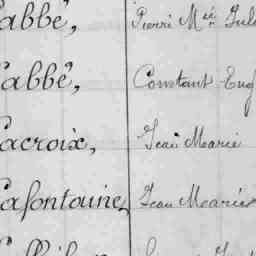 abbé, Pierre Mie Jul
abbé, Constant Eug
acroix, Jean Marie
afontaine, Jean Marie